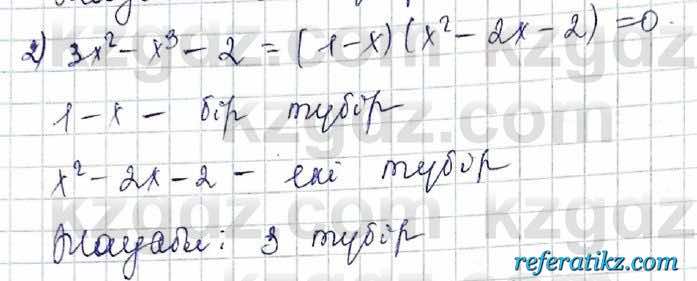 2) 3x² - x³ - 2 = (1-x)(x² - 2x - 2) = 0.
1 - x - бір түбір
x² - 2x - 2 - екі түбір
Жауабы: 3 түбір
referatikz.com